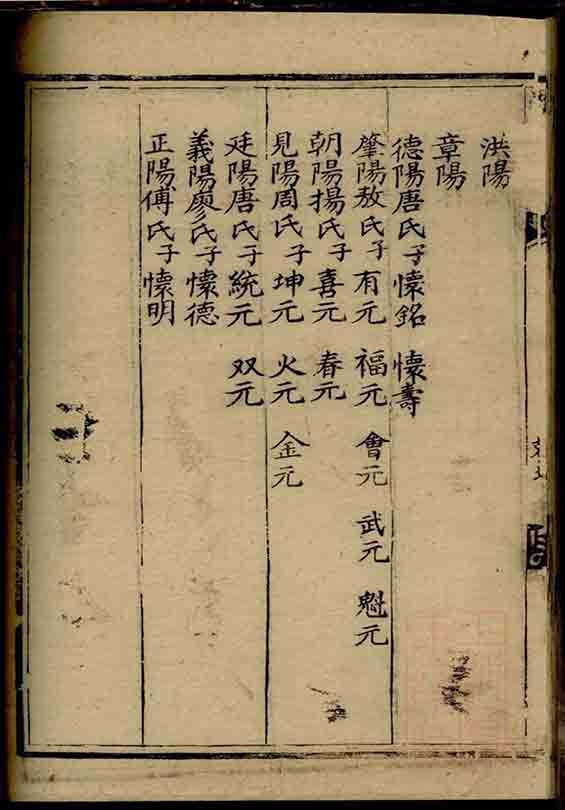 洪陽
章陽
德陽唐氏子懷銘 懷壽
肇陽敖氏子有元 福元 會元 武元 魁元
朝陽揚氏子喜元 春元
見陽周氏子坤元 火元 金元
廷陽唐氏子統元 双元
義陽廖氏子懷德
正陽傅氏子懷明